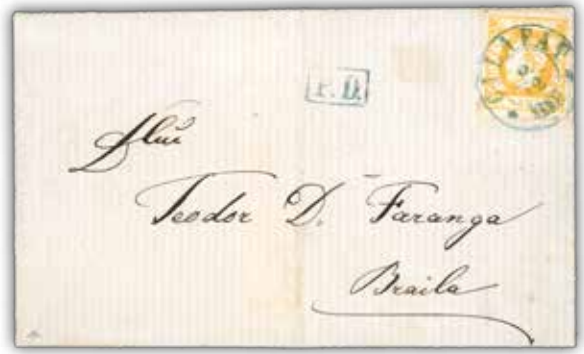 P.D.
Dlui
Teodor D. Faranga
Braila